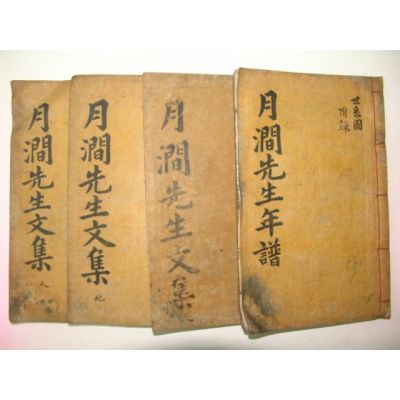 月澗先生年譜
世系圖
附錄
月澗先生文集
月澗先生文集
地
月澗先生文集
人